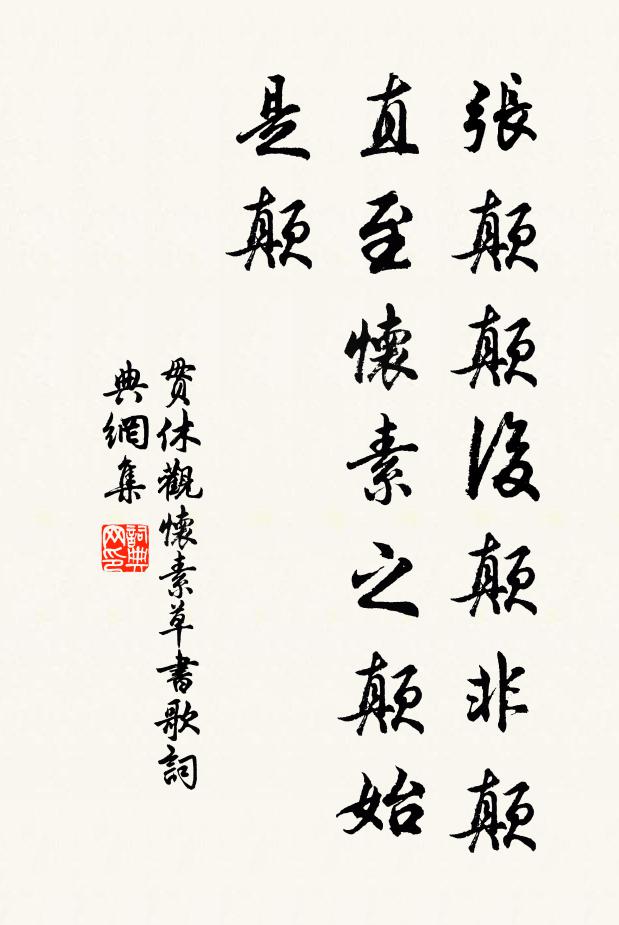 張顛顛後顛非顛
直至懷素之顛始
是顛
貫休觀懷素草書歌詞
典網集
詞典
网印